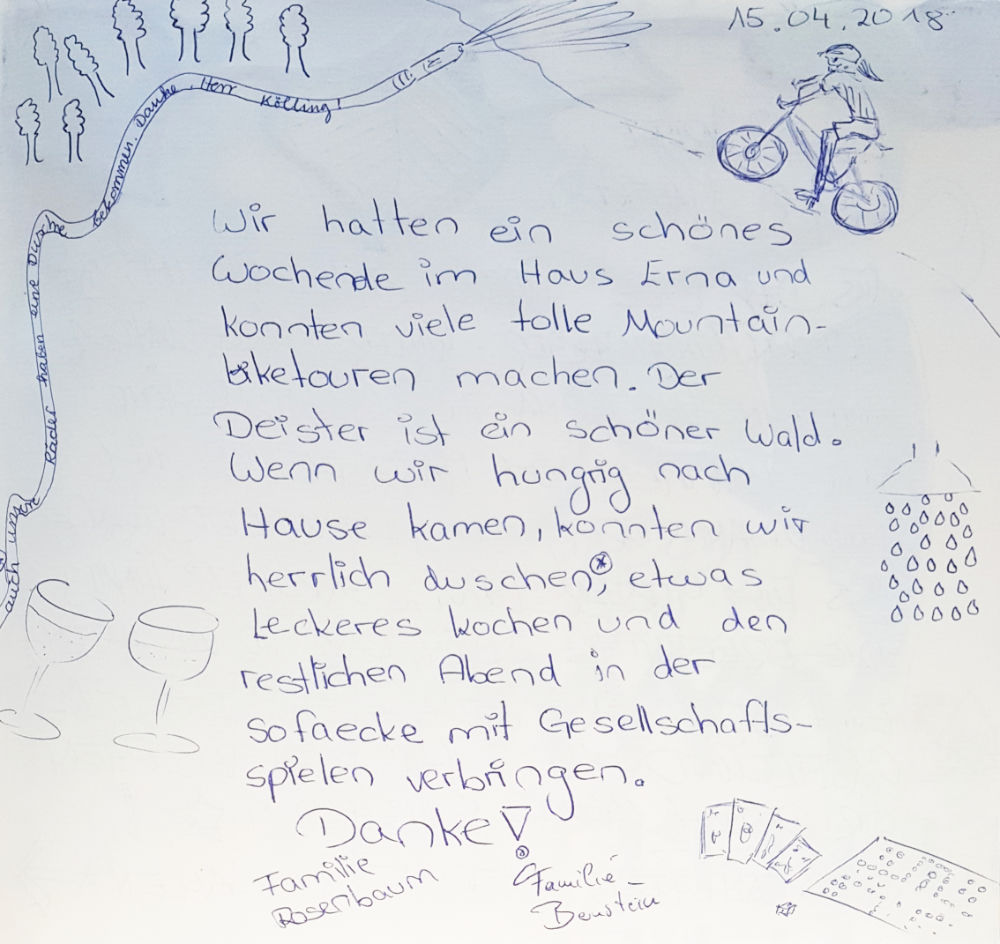 15.04.2018
Wir hatten ein schönes
Wochende im Haus Erna und
konnten viele tolle Mountain-
biketouren machen. Der
Deister ist ein schöner Wald.
Wenn wir hungrig nach
Hause kamen, konnten wir
herrlich duschen*, etwas
Leckeres kochen und den
restlichen Abend in der
Sofaecke mit Gesellschafts-
spielen verbringen.
Danke!
Familie
Rosenbaum
Familie
Bernstein
auch unsere Räder haben eine Dusche bekommen. Danke, Herr Kölling!